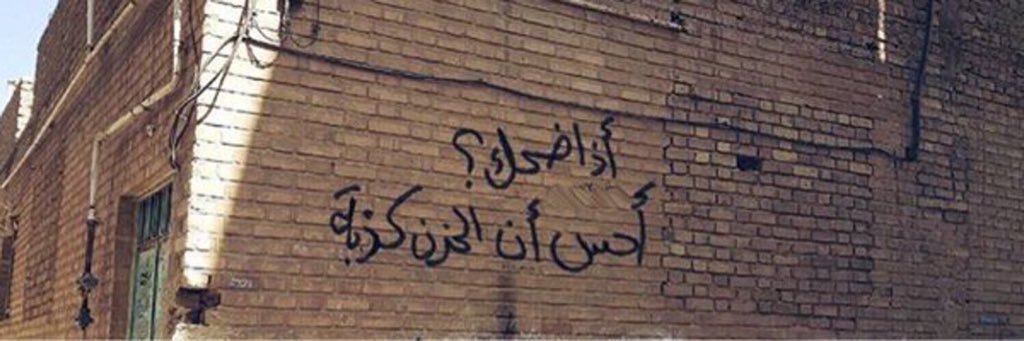 أذا ضحك؟
أحس أن الحزن كذبة